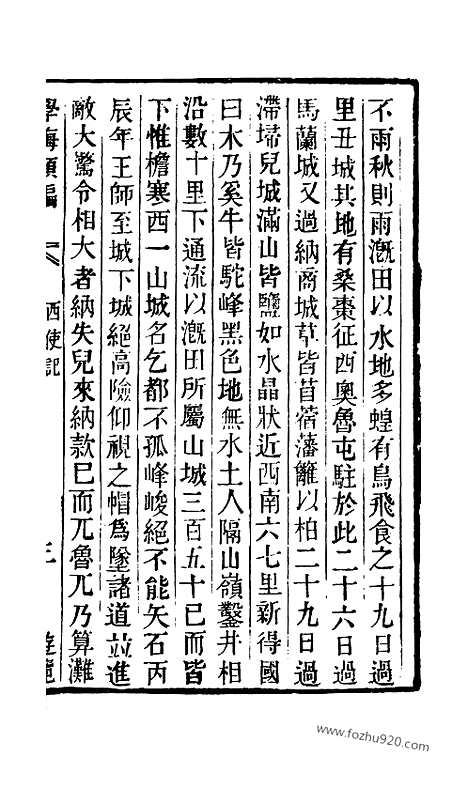 不雨秋則雨漑田以水地多蝗有鳥飛食之十九日過
里丑城其地有桑棗征西奧魯屯駐於此二十六日過
馬蘭城又過納商城草皆苜蓿藩籬以柏二十九日過
滯埽兒城滿山皆鹽如水晶狀近西南六七里新得國
曰木乃奚牛皆駝峰黑色地無水土人隔山嶺鑿井相
沿數十里下通流以漑田所屬山城三百五十已而皆
下惟檐寒西一山城名乞都不孤峰峻絕不能矢石丙
辰年王師至城下城絕高險仰視之帽爲墜諸道並進
敵大驚令相大者納失兒來納款已而兀魯兀乃算灘
學海類編
西使記
三
遊覽
www.fozhu920.com